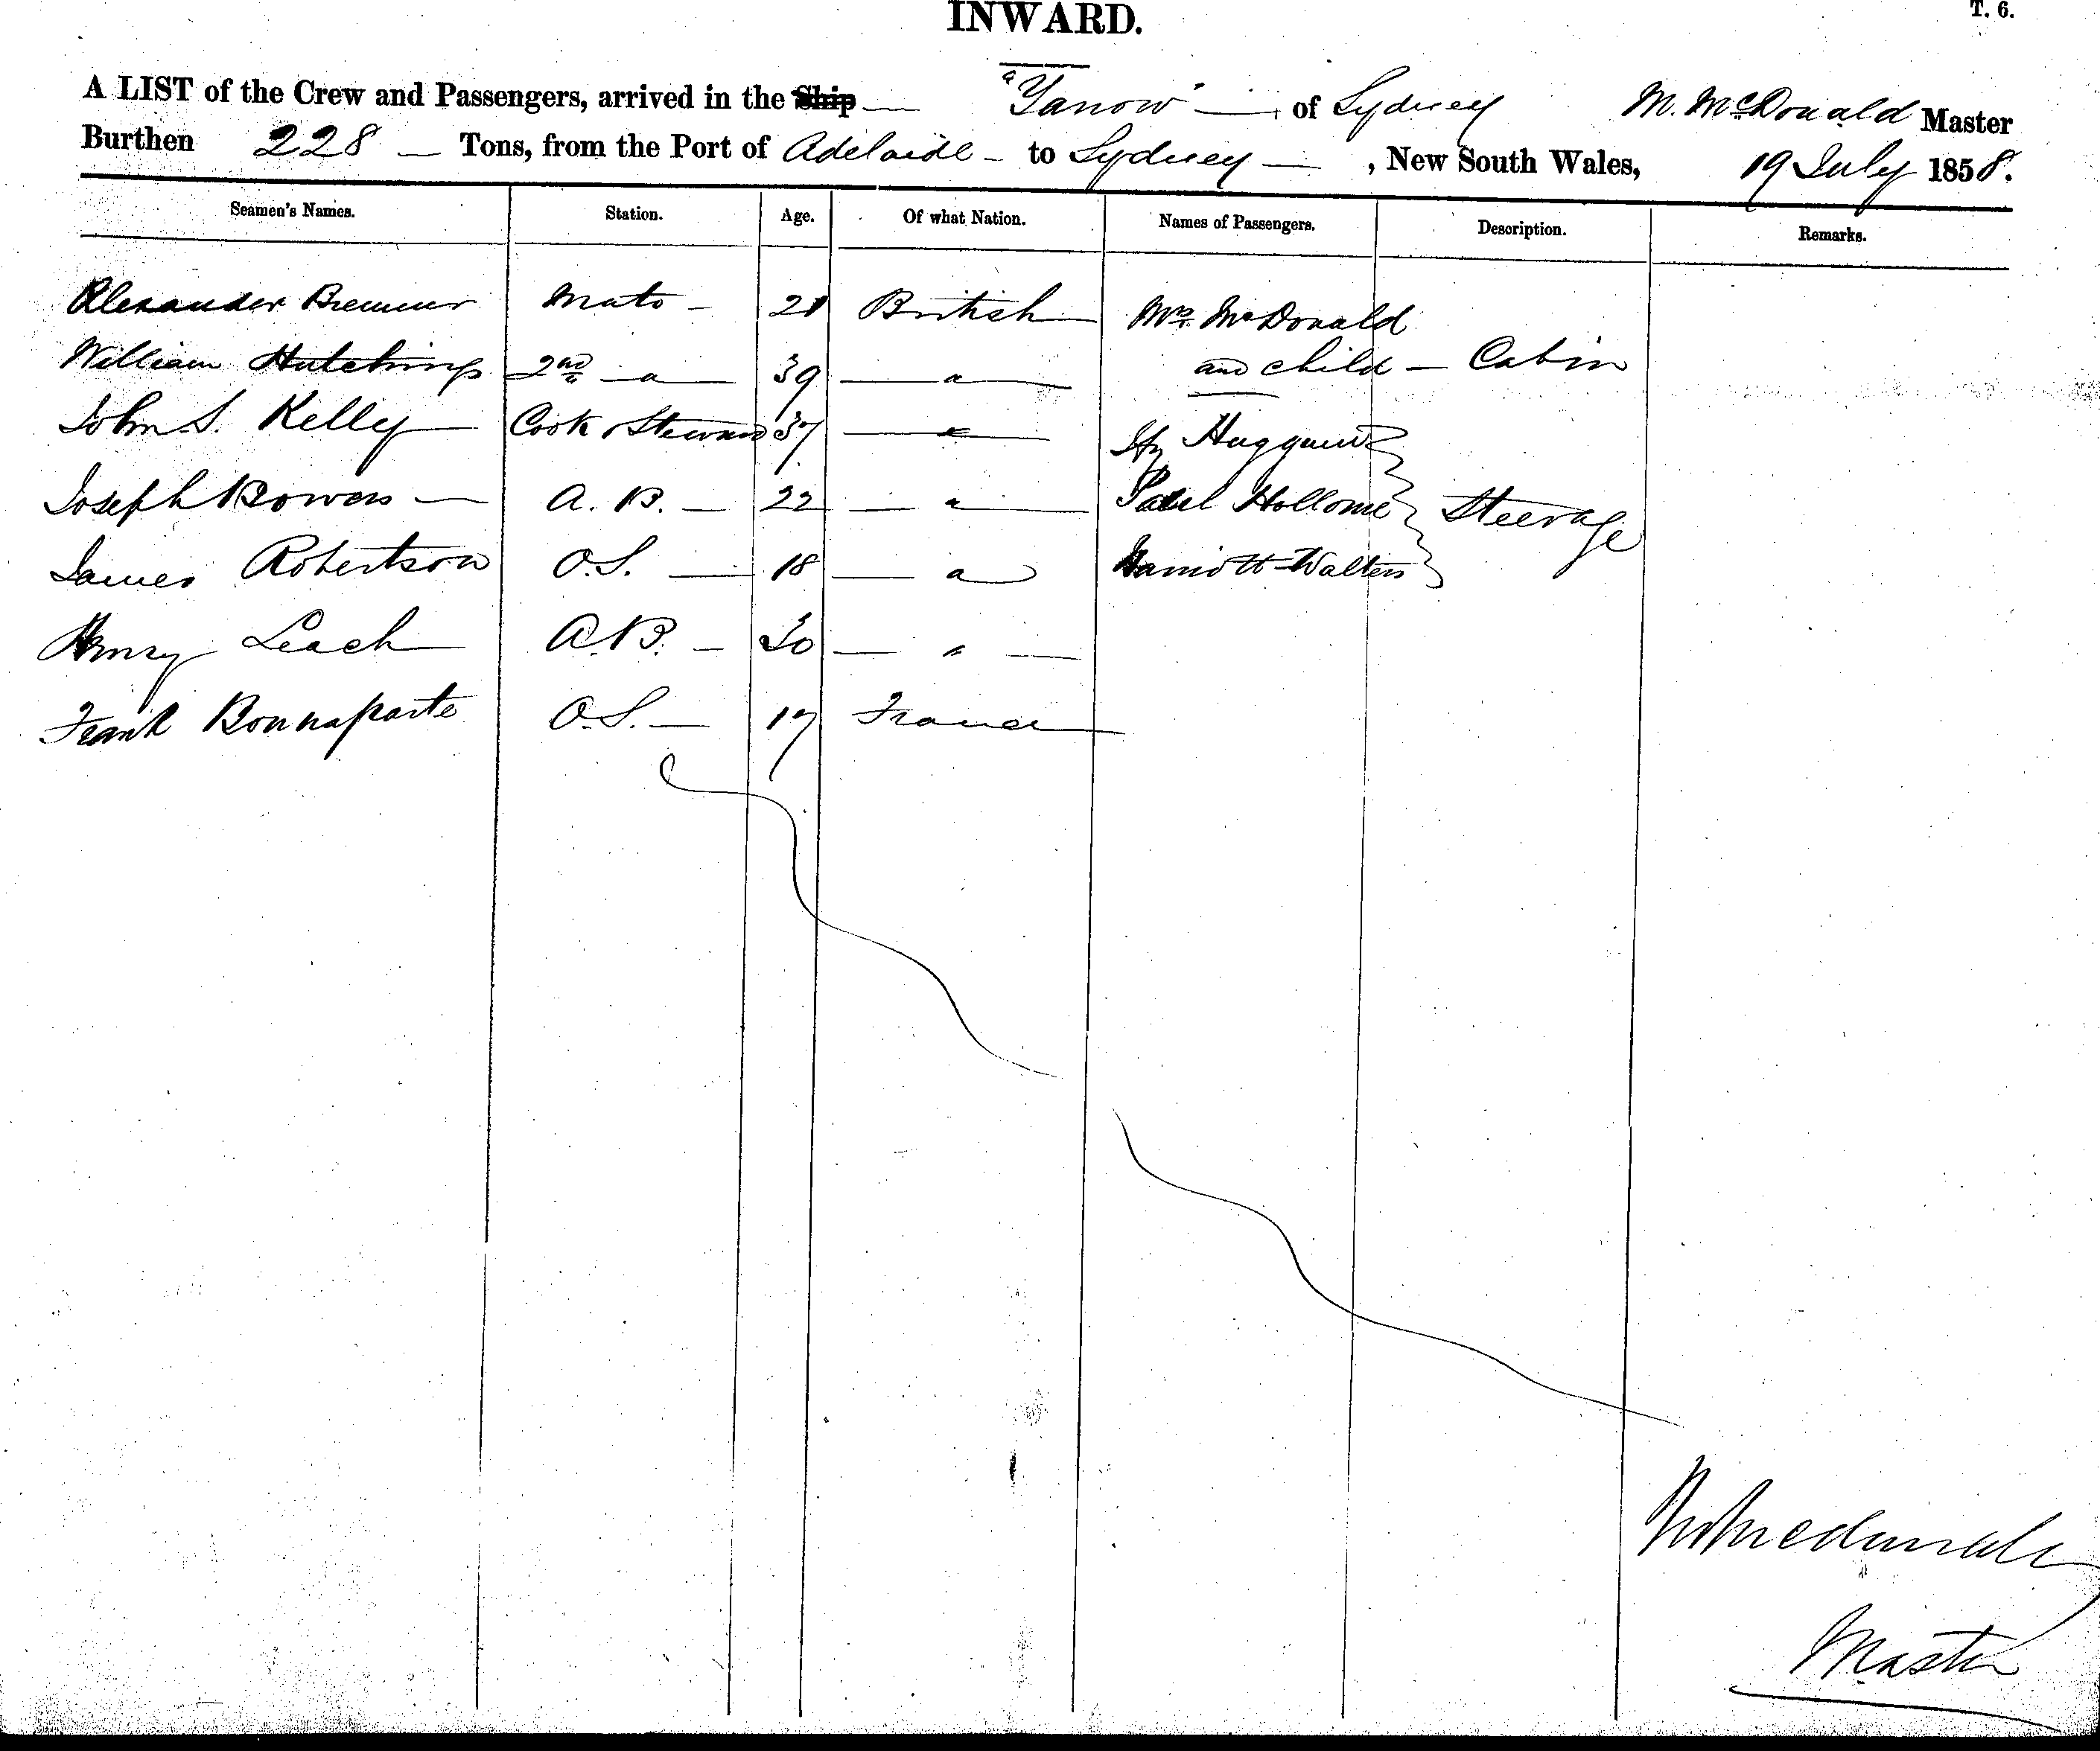 INWARD.
T. 6.
A LIST of the Crew and Passengers, arrived in the Ship "Yarrow" of Sydney M. McDonald Master
Burthen 228 Tons, from the Port of Adelaide to Sydney, New South Wales, 19 July 1858.
Seamen's Names. Station. Age. Of what Nation. Names of Passengers. Description. Remarks.
Alexander Bremner Mate 21 British Mrs. McDonald
William Hutchings 2nd " 39 " and child Cabin
John S. Kelly Cook & Steward 37 "
Joseph Bowers A.B. 22 " Paul Steerage
James Robertson O.S. 18 " Walters
Henry Leach A.B. 30 "
Frank Bonnaparte O.S. 17 France
Master